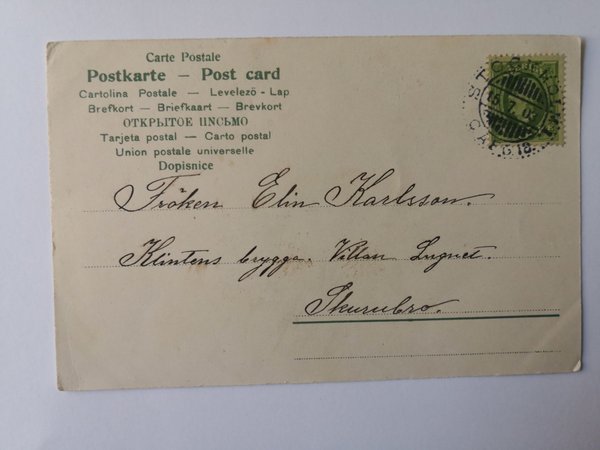 Carte Postale
Postkarte — Post card
Cartolina Postale — Levelező - Lap
Brefkort — Briefkaart — Brevkort
ОТКРЫТОЕ ПИСЬМО
Tarjeta postal — Carto postal
Union postale universelle
Dopisnice
STOCKHOLM
15 7 03
AFG. 18
Fröken Elin Karlsson.
Klintens brygga. Villan Lugnet.
Skurubro.